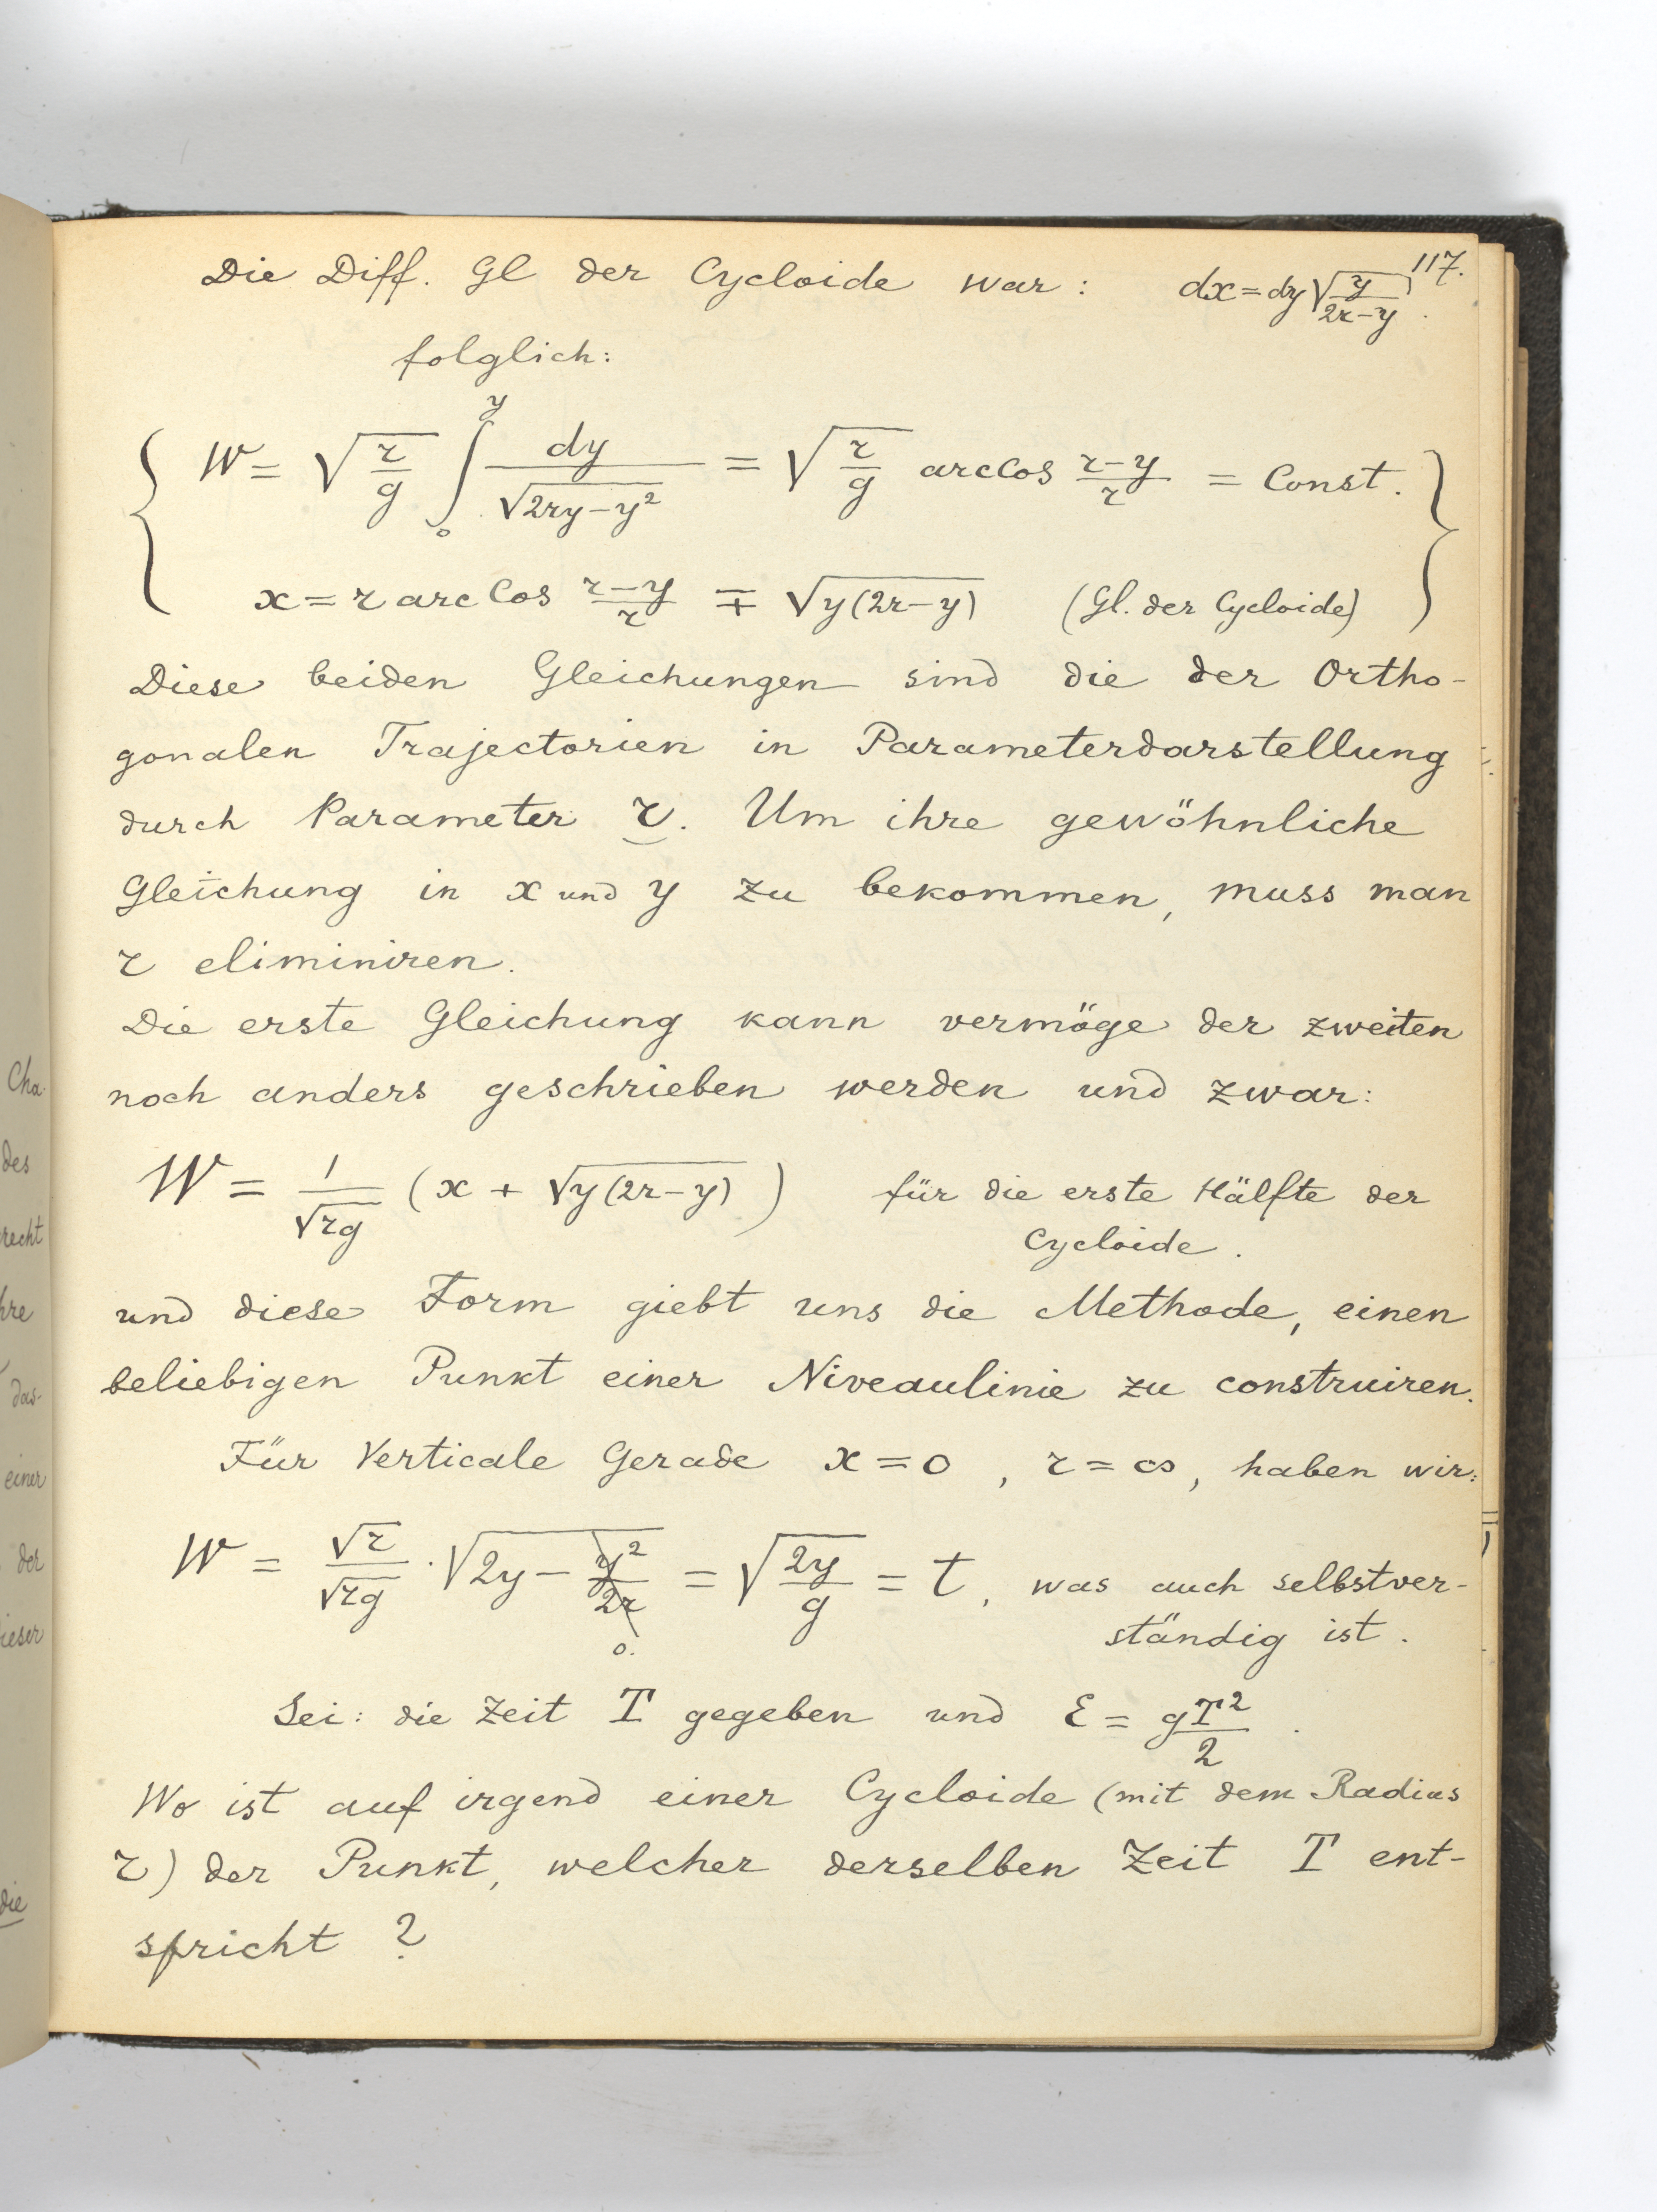 117.
Die Diff. Gl der Cycloide war: dx = dy √(y/(2r-y)).
folglich:
W = √(r/g) ∫₀^y dy/√(2ry-y²) = √(r/g) arccos (r-y)/r = Const.
x = r arc Cos (r-y)/r ∓ √(y(2r-y)) (Gl. der Cycloide)
Diese beiden Gleichungen sind die der Ortho-
gonalen Trajectorien in Parameterdarstellung
durch Parameter r. Um ihre gewöhnliche
Gleichung in x und y zu bekommen, muss man
r eliminiren.
Die erste Gleichung kann vermöge der zweiten
noch anders geschrieben werden und zwar:
W = 1/√(rg) (x + √(y(2r-y))) für die erste Hälfte der
Cycloide.
und diese Form giebt uns die Methode, einen
beliebigen Punkt einer Niveaulinie zu construiren.
Für Verticale Gerade x = 0, r = ∞, haben wir:
W = √r/√(rg) · √(2y - y²/2r) = √(2y/g) = t, was auch selbstver-
0.
ständig ist.
Sei: die Zeit T gegeben und ℰ = gT²/2.
Wo ist auf irgend einer Cycloide (mit dem Radius
r) der Punkt, welcher derselben Zeit T ent-
spricht?
Cha-
des
recht
hre
das-
einer
der
dieser
die